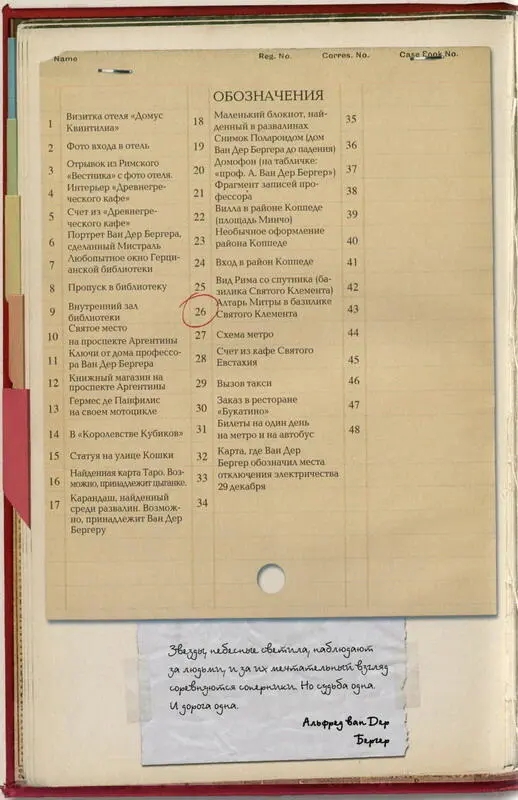 Name Reg. No. Corres. No. Case Book No.
ОБОЗНАЧЕНИЯ
1 Визитка отеля «Домус
Квинтилиа»
2 Фото входа в отель
3 Отрывок из Римского
«Вестника» с фото отеля.
4 Интерьер «Древнегре-
ческого кафе»
5 Счет из «Древнегре-
ческого кафе»
6 Портрет Ван Дер Бергера,
сделанный Мистраль
7 Любопытное окно Герци-
анской библиотеки
8 Пропуск в библиотеку
9 Внутренний зал
библиотеки
10 Святое место
на проспекте Аргентины
11 Ключи от дома профессо-
ра Ван Дер Бергера
12 Книжный магазин на
проспекте Аргентины
13 Гермес де Панфилис
на своем мотоцикле
14 В «Королевстве Кубиков»
15 Статуя на улице Кошки
16 Найденная карта Таро. Воз-
можно, принадлежит цыганке.
17 Карандаш, найденный
среди развалин. Возмож-
но, принадлежит Ван Дер
Бергеру
18 Маленький блокнот, най-
денный в развалинах
19 Снимок Полароидом (дом
Ван Дер Бергера до падения)
20 Домофон (на табличке:
«проф. А. Ван Дер Бергер»)
21 Фрагмент записей про-
фессора
22 Вилла в районе Коппеде
(площадь Минчо)
23 Необычное оформление
района Коппеде
24 Вход в район Коппеде
25 Вид Рима со спутника (ба-
зилика Святого Клемента)
26 Алтарь Митры в базилике
Святого Клемента
27 Схема метро
28 Счет из кафе Святого
Евстахия
29 Вызов такси
30 Заказ в ресторане
«Букатино»
31 Билеты на один день
на метро и на автобус
32 Карта, где Ван Дер
33 Бергер обозначил места
отключения электричества
29 декабря
34
35
36
37
38
39
40
41
42
43
44
45
46
47
48
Звезды, небесные светила, наблюдают
за людьми, и за их мечтательный взгляд
соревнуются соперники. Но судьба одна.
И дорога одна.
Альфред ван Дер
Бергер